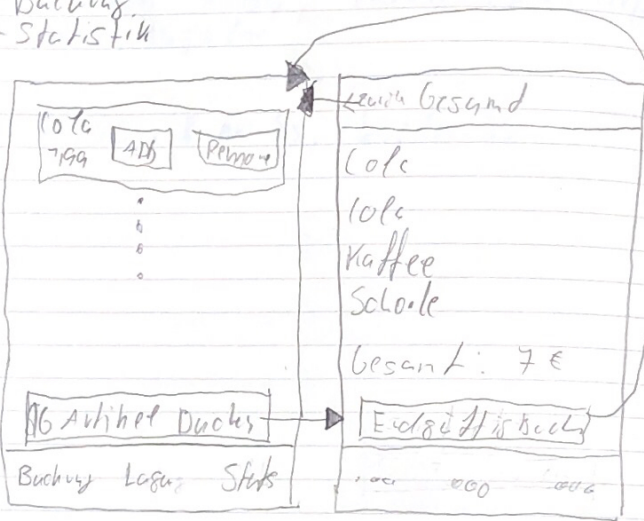 Buchung
- Statistik
Cola
7,99 ADD Remove
16 Artikel Buchen
Buchung Lager Stats
zurück Gesamd
Cola
Cola
Kaffee
Schoole
Gesamt: 7 €